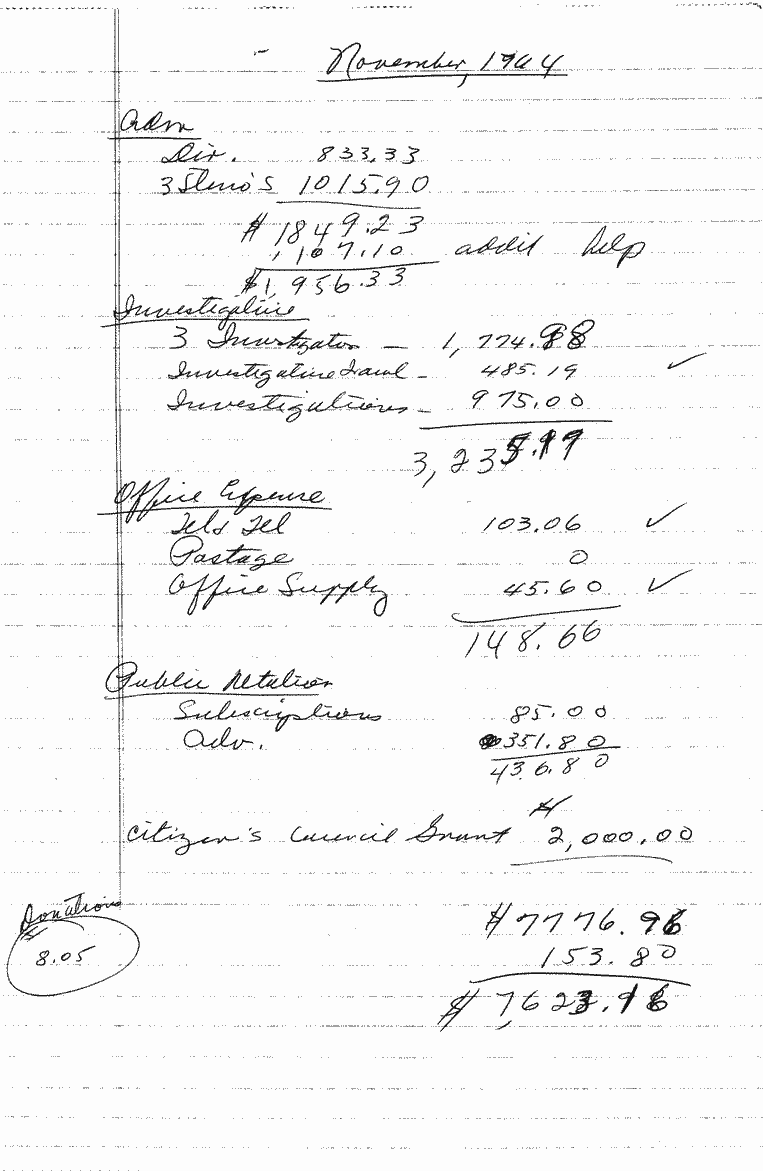 November, 1964
Adm
Dir. 833.33
3 Steno's 1015.90
$1849.23
107.10 addit help
$1,956.33
Investigative
3 Investigators - 1,774.98
Investigative Travel - 485.19 ✓
Investigations - 975.00
3,235.17
Office Expense
Tel & Tel 103.06 ✓
Postage 0
Office Supply 45.60 ✓
148.66
Public Relation
Subscriptions 85.00
Adv. 351.80
436.80
$
Citizen's Council Grant 2,000.00
Donations
$ 8.05
$7776.96
153.80
$7,623.16